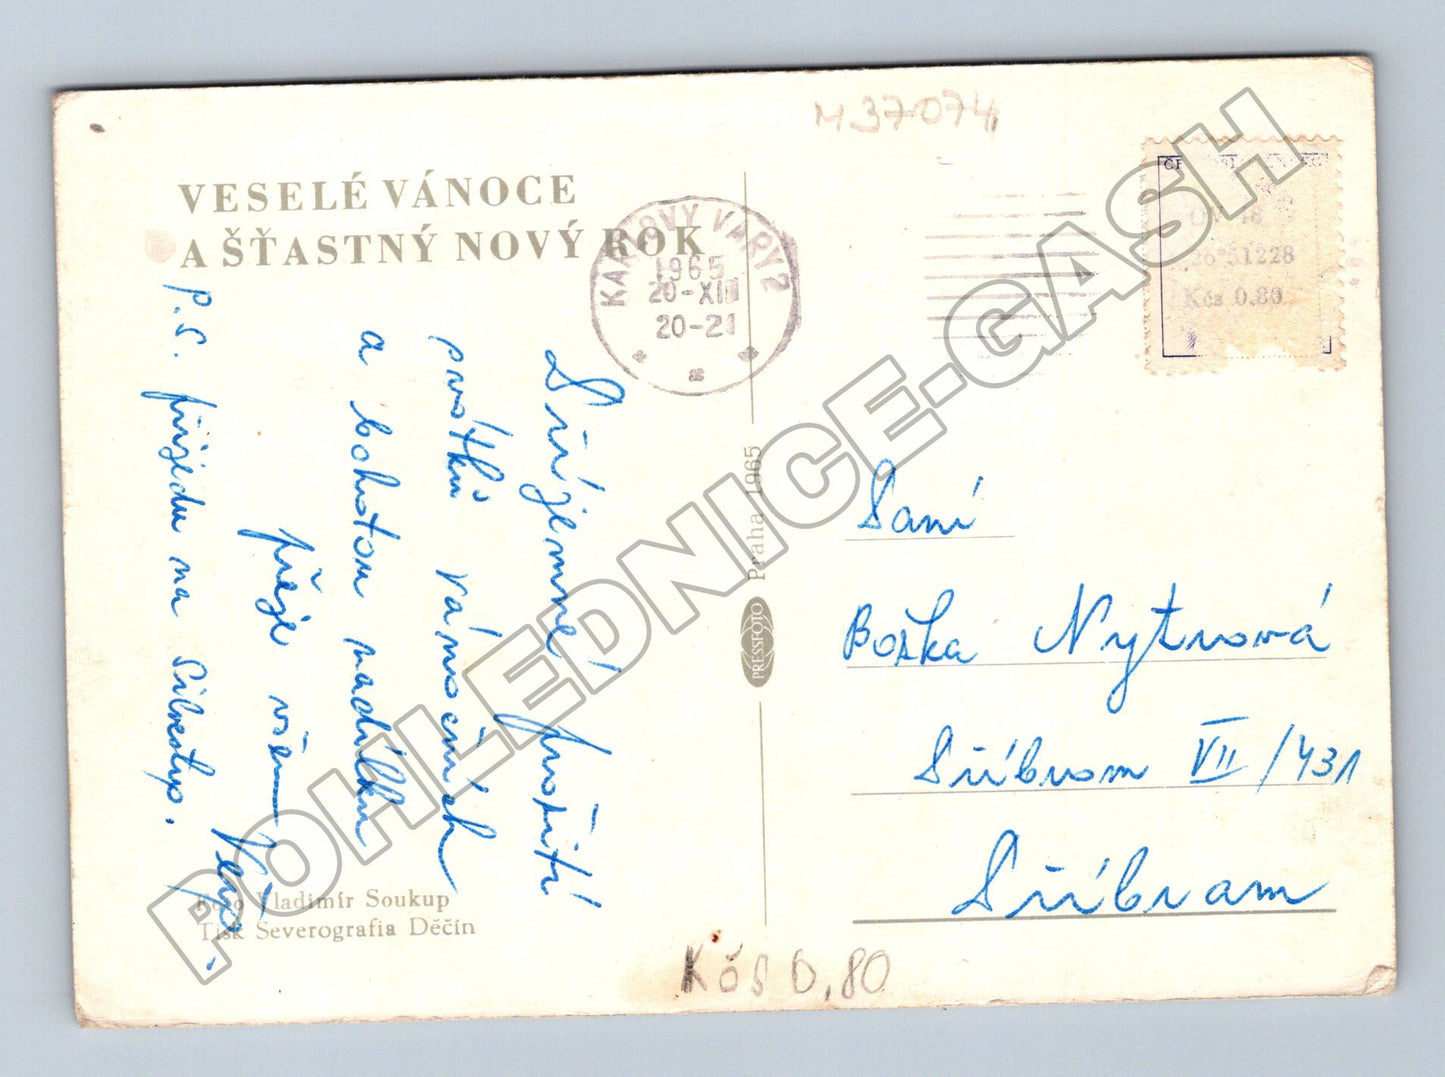 M 37074
VESELÉ VÁNOCE
A ŠŤASTNÝ NOVÝ ROK
KARLOVY VARY 2
1965
20-XII
20-21
26*51228
Kčs 0.80
Příjemné prožití
svátků vánočních
a bohatou nadílku
přeje všem
P.S. přijedu na Silvestra.
Praha 1965
PRESSFOTO
Paní
Boška Nytrová
Příbram VII/431
Příbram
Foto Vladimír Soukup
Tisk Severografia Děčín
Kčs 0,80
POHLEDNICE-GASH